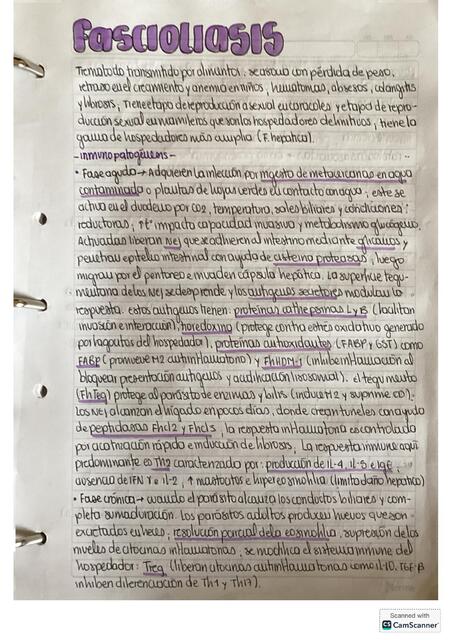 Fascioliasis
Trematodo transmitido por alimentos. se asocia con pérdida de peso,
retraso en el crecimiento y anemia en niños, hematomas, abscesos, colangitis
y fibrosis, tiene etapa de reproducción asexual en caracoles y etapa de repro-
ducción sexual en mamíferos que son los hospedadores definitivos, tiene la
gama de hospedadores más amplia (F. hepatica).
- inmunopatogénesis -
• Fase aguda → Adquieren la infección por ingesta de metacercarias en agua
contaminada o plantas de hojas verdes en contacto con agua, este se
activa en el duodeno por CO2, temperatura, sales biliares y condiciones
reductoras, ↑ impacto capacidad invasiva y metabolismo glucógeno.
Activadas liberan NEJ que se adhieren al intestino mediante glicanos y
penetran epitelio intestinal con ayuda de cisteína proteasas, luego
migran por el peritoneo e invaden cápsula hepática. La superficie tegu-
mentaria de los NEJ se desprende y los antígenos secretores modulan la
respuesta. estos antígenos tienen: proteínas cathepsinas L y B (facilitan
invasión e interacción), tioredoxina (protege contra estrés oxidativo generado
por fagocitos del hospedador), proteínas antioxidantes (FABP y GST) como
FABP (promueve M2 antiinflamatorio) y FhHDM-1 (inhibe inflamación al
bloquear presentación antígenos y acidificación lisosomal). el tegumento
(FhTeg) protege al parásito de enzimas y bilis (induce M2 y suprime CD).
Los NEJ alcanzan el hígado en pocos días, donde crean túneles con ayuda
de peptidasas FhcL2 y FhcL3, la respuesta inflamatoria es controlada
por cicatrización rápida e inducción de fibrosis, La respuesta inmune aquí
predominante es Th2 caracterizado por: producción de IL-4, IL-5 e IgE,
ausencia de IFN γ e IL-2, ↑ mastocitos e hipereosinofilia (limita daño hepático)
• Fase crónica → cuando el parásito alcanza los conductos biliares y com-
pleta su maduración. Los parásitos adultos producen huevos que son
excretados en heces, resolución parcial de la eosinofilia, supresión de los
niveles de citocinas inflamatorias, se modifica el sistema inmune del
hospedador: Treg (liberan citocinas antiinflamatorias como IL-10, TGF-β
inhiben diferenciación de Th1 y Th17).
Scanned with
CS CamScanner